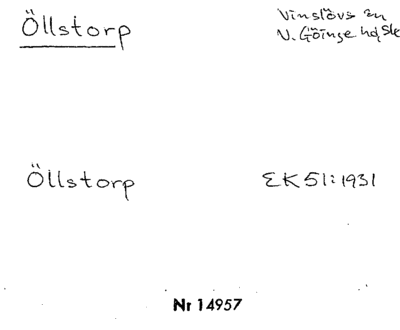 Öllstorp
Vinslövs sn
V. Göinge hd, Sk
Öllstorp
EK 51:1931
Nr 14957